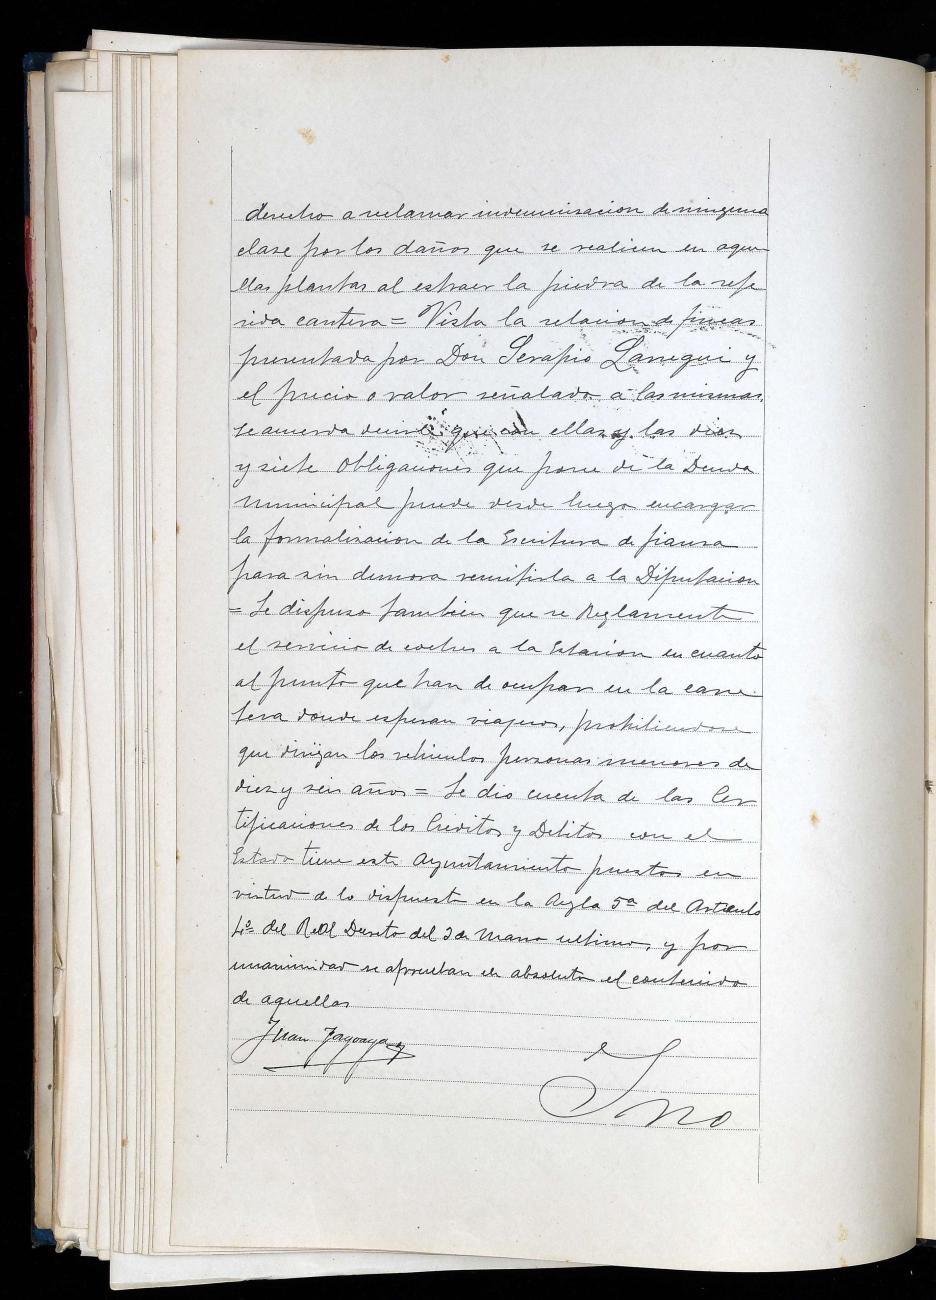 derecho a reclamar indemnisacion de ninguna
clase por los daños que se realicen en aque
llas plantas al estraer la piedra de la refe
rida cantera = Vista la relacion de fincas
presentada por Don Serapio Larregui y
el precio o valor señalado á las mismas,
se acuerda decirle que con ellas y las diez
y siete obligaciones que posee de la Deuda
municipal puede desde luego encargar
la formalisacion de la Escritura de fianza
para sin demora remitirla a la Diputacion
= Se dispuso tambien que se Reglamente
el servicio de coches a la Estacion en cuanto
al punto que han de ocupar en la carre
tera donde esperan viajeros, prohibiendose
que dirijan los vehiculos personas menores de
diez y seis años = Se dio cuenta de las Cer
tificaciones de los Creditos y Debitos con el
Estado tiene este Ayuntamiento puestos en
virtud de lo dispuesto en la Regla 5ª del Artículo
4º del Real Decreto del 2 de Marzo ultimo, y por
unanimidad se aprueban en absoluto el contenido
de aquellas
Juan Fagoaga